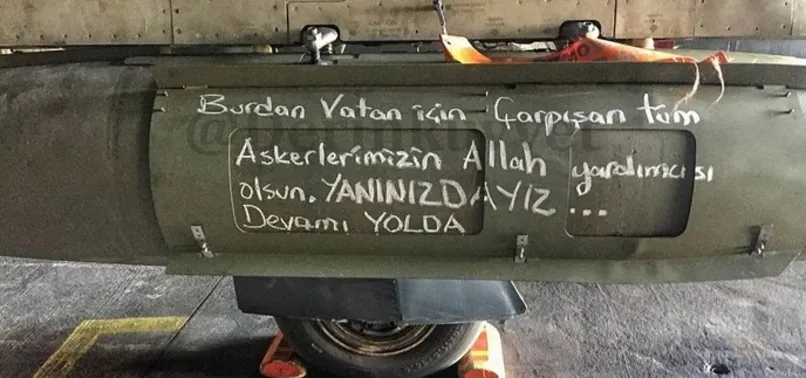 Burdan Vatan için Çarpışan tüm
Askerlerimizin Allah yardımcısı
olsun. YANINIZDAYIZ...
Devamı YOLDA